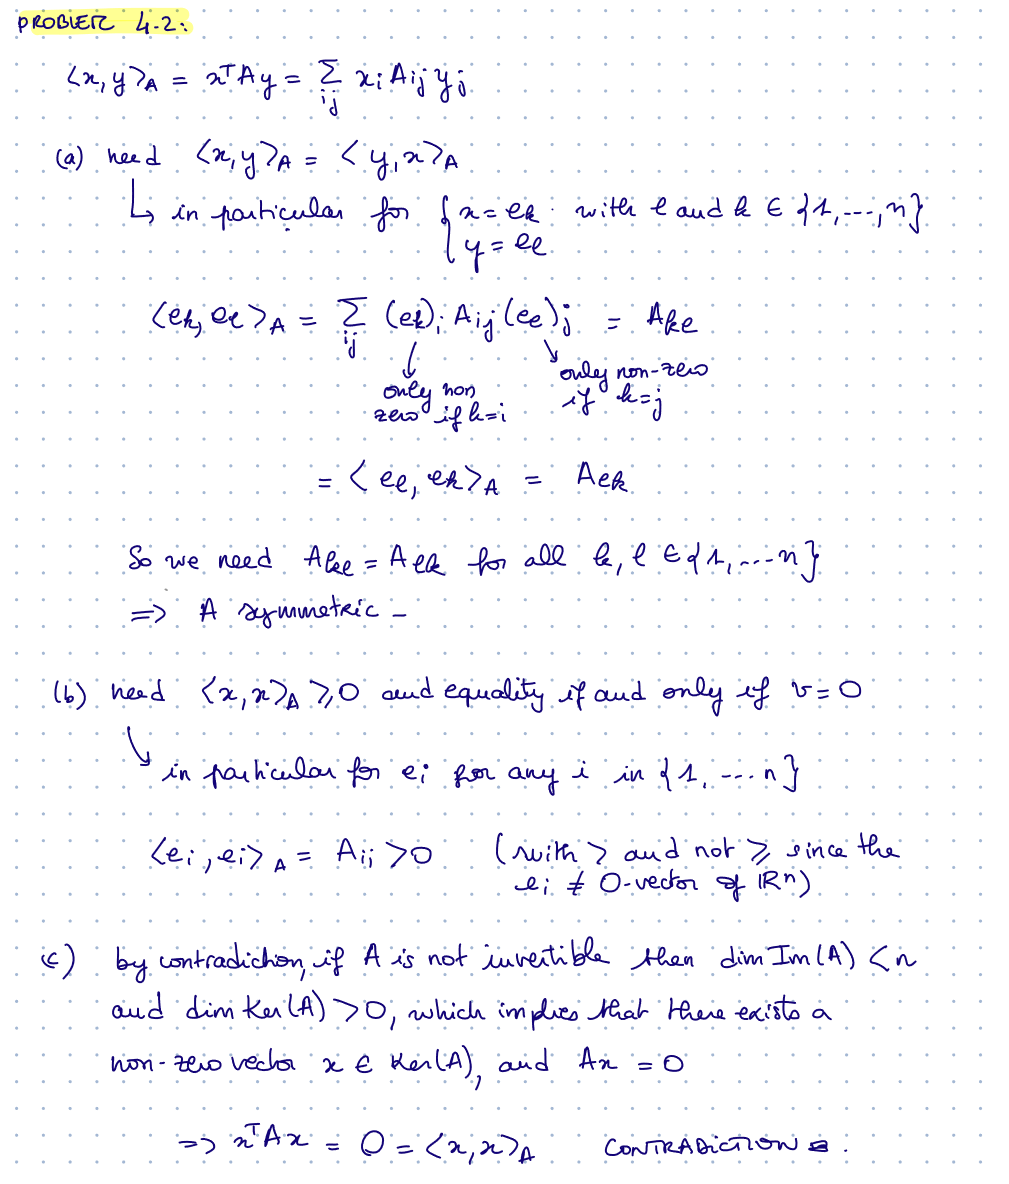 PROBLEM 4.2:
<x,y>_A = x^T A y = Σ_{ij} x_i A_{ij} y_j
(a) need <x,y>_A = <y,x>_A
↳ in particular for { x = e_k with l and k ∈ {1,---,n}
y = e_l
<e_k, e_l>_A = Σ_{ij} (e_k)_i A_{ij} (e_l)_j = A_{kl}
only non zero if k=i
only non-zero if k=j
= <e_l, e_k>_A = A_{lk}
So we need A_{kl} = A_{lk} for all k, l ∈ {1,---n}
=> A symmetric -
(b) need <x,x>_A ⩾ 0 and equality if and only if v=0
↘ in particular for e_i for any i in {1,---n}
<e_i, e_i>_A = A_{ii} > 0 (with > and not ⩾ since the
e_i ≠ 0-vector of ℝ^n)
(c) by contradiction, if A is not invertible then dim Im(A) < n
and dim Ker(A) > 0, which implies that there exists a
non-zero vector x ∈ Ker(A), and Ax = 0
=> x^T A x = 0 = <x,x>_A CONTRADICTION.